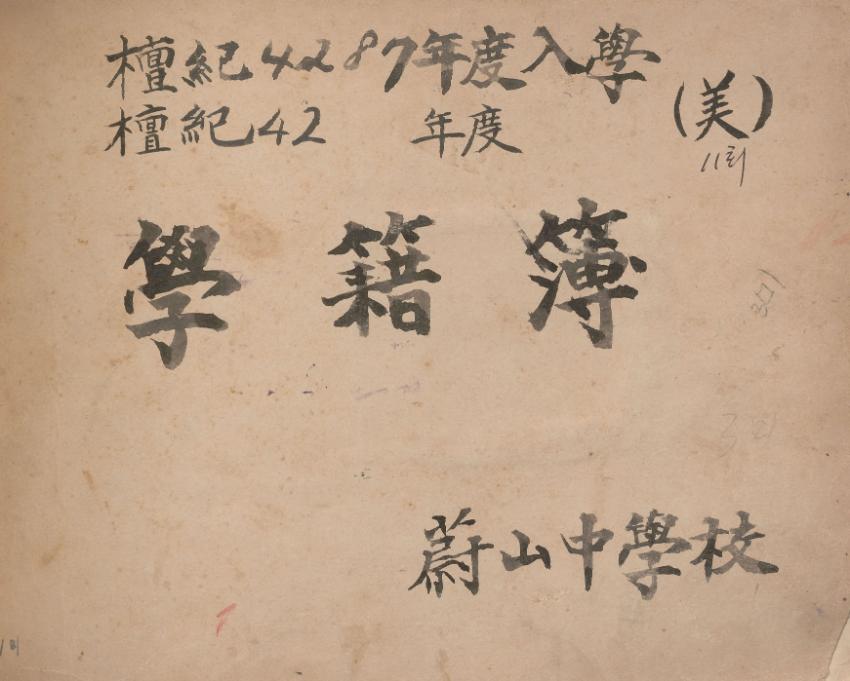 檀紀4287年度入學
檀紀42 年度
(美)
11회
學籍簿
蔚山中學校